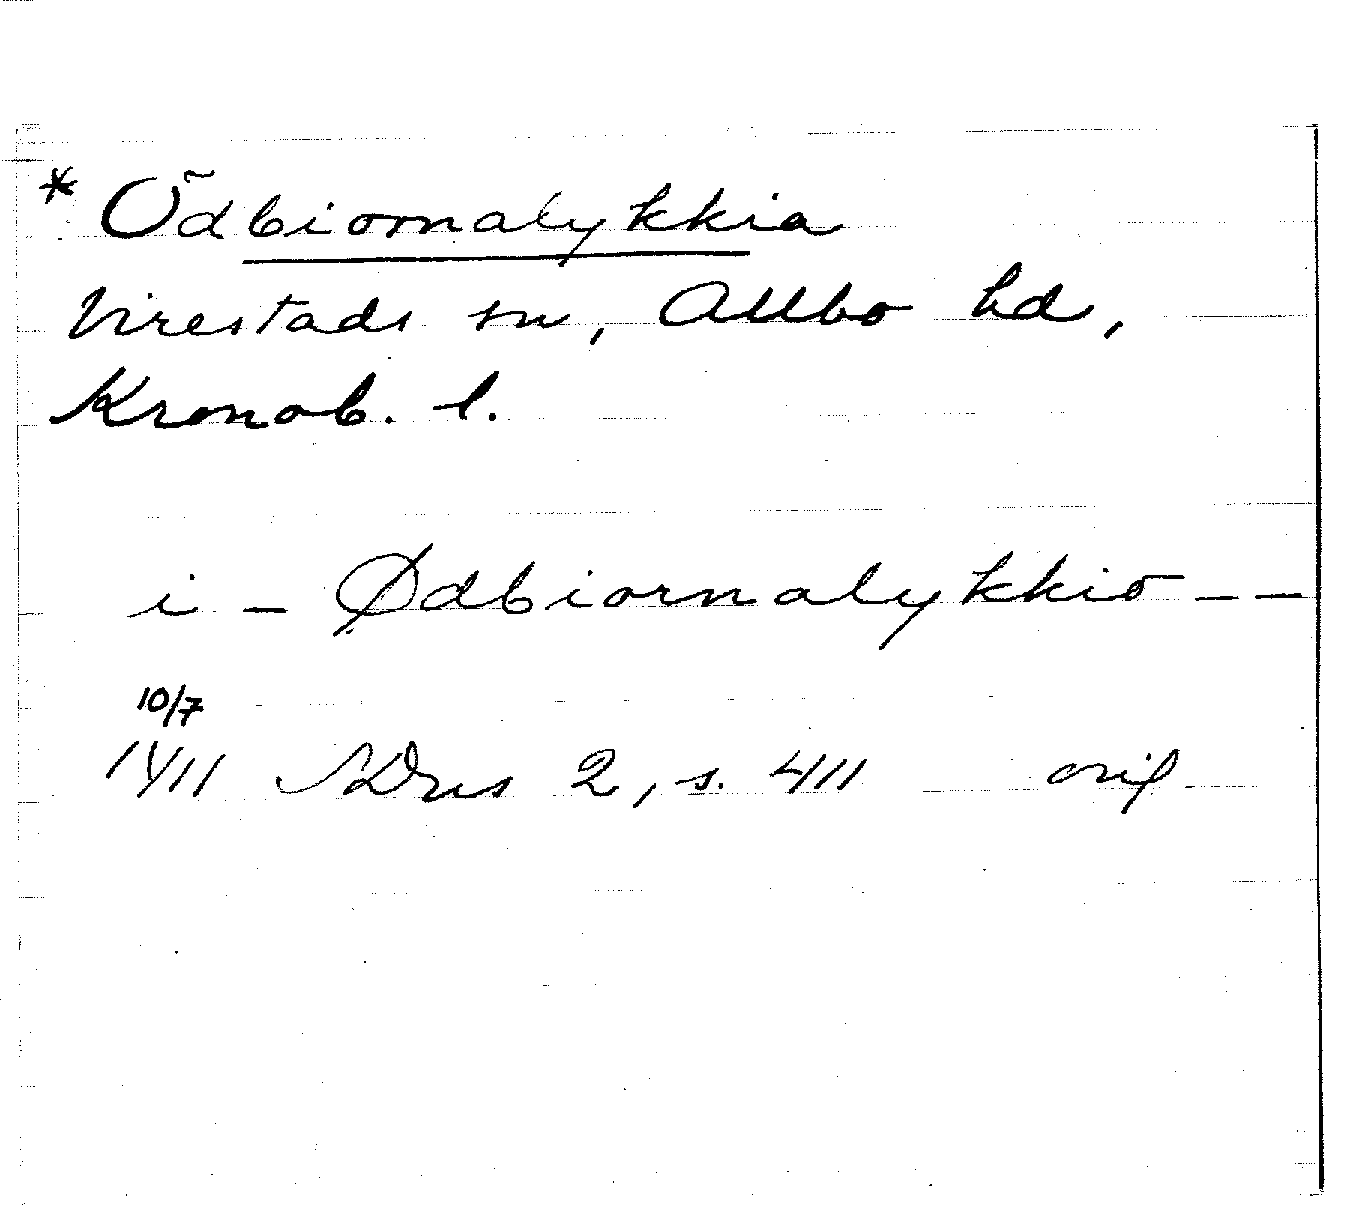 * Ödbiornalykkia
Virestads sn, Allbo hd,
Kronob. l.
i - Ødbiornalykkio - -
10/7
1411 SDns 2, s. 411 orig